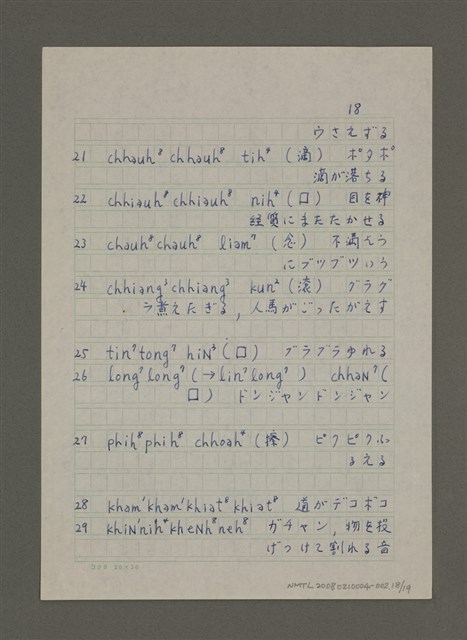 18
ウさえずる
21 chhauh⁸ chhauh⁸ tih⁴ (滴) ポタポ
滴が落ちる
22 chhiauh⁸ chhiauh⁸ nih⁴ (口) 目を神
経質にまたたかせる
23 chauh⁸ chauh⁸ liam⁷ (念) 不満そう
にブツブツいう
24 chhiang³ chhiang³ kun² (滾) グラグ
ラ煮えたぎる, 人馬がごったがえす
25 tin⁷ tong⁷ hiN³ (口) ブラブラゆれる
26 long⁷ long⁷ (→ lin⁷ long⁷ ) chhaN⁷ (
口) ドンジャンドンジャン
27 phih⁸ phih⁸ chhoah⁴ (擦) ピクピクふ
るえる
28 kham¹ kham¹ khiat⁸ khiat⁸ 道がデコボコ
29 khiN¹ nih⁴ kheNh⁸ neh⁸ ガチャン, 物を投
げつけて割れる音
20×20
NMTL20080210004-002 18/19